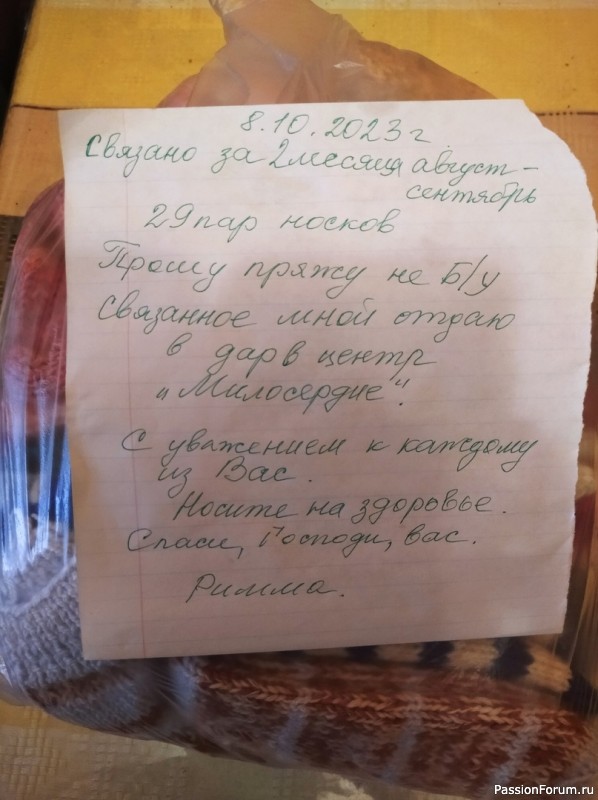 8.10.2023 г.
Связано за 2 месяца август-
сентябрь
29 пар носков
Прошу пряжу не Б/у
Связанное мной отдаю
в дар в центр
„Милосердие".
С уважением к каждому
из Вас.
Носите на здоровье.
Спаси, Господи, вас.
Римма.
PassionForum.ru